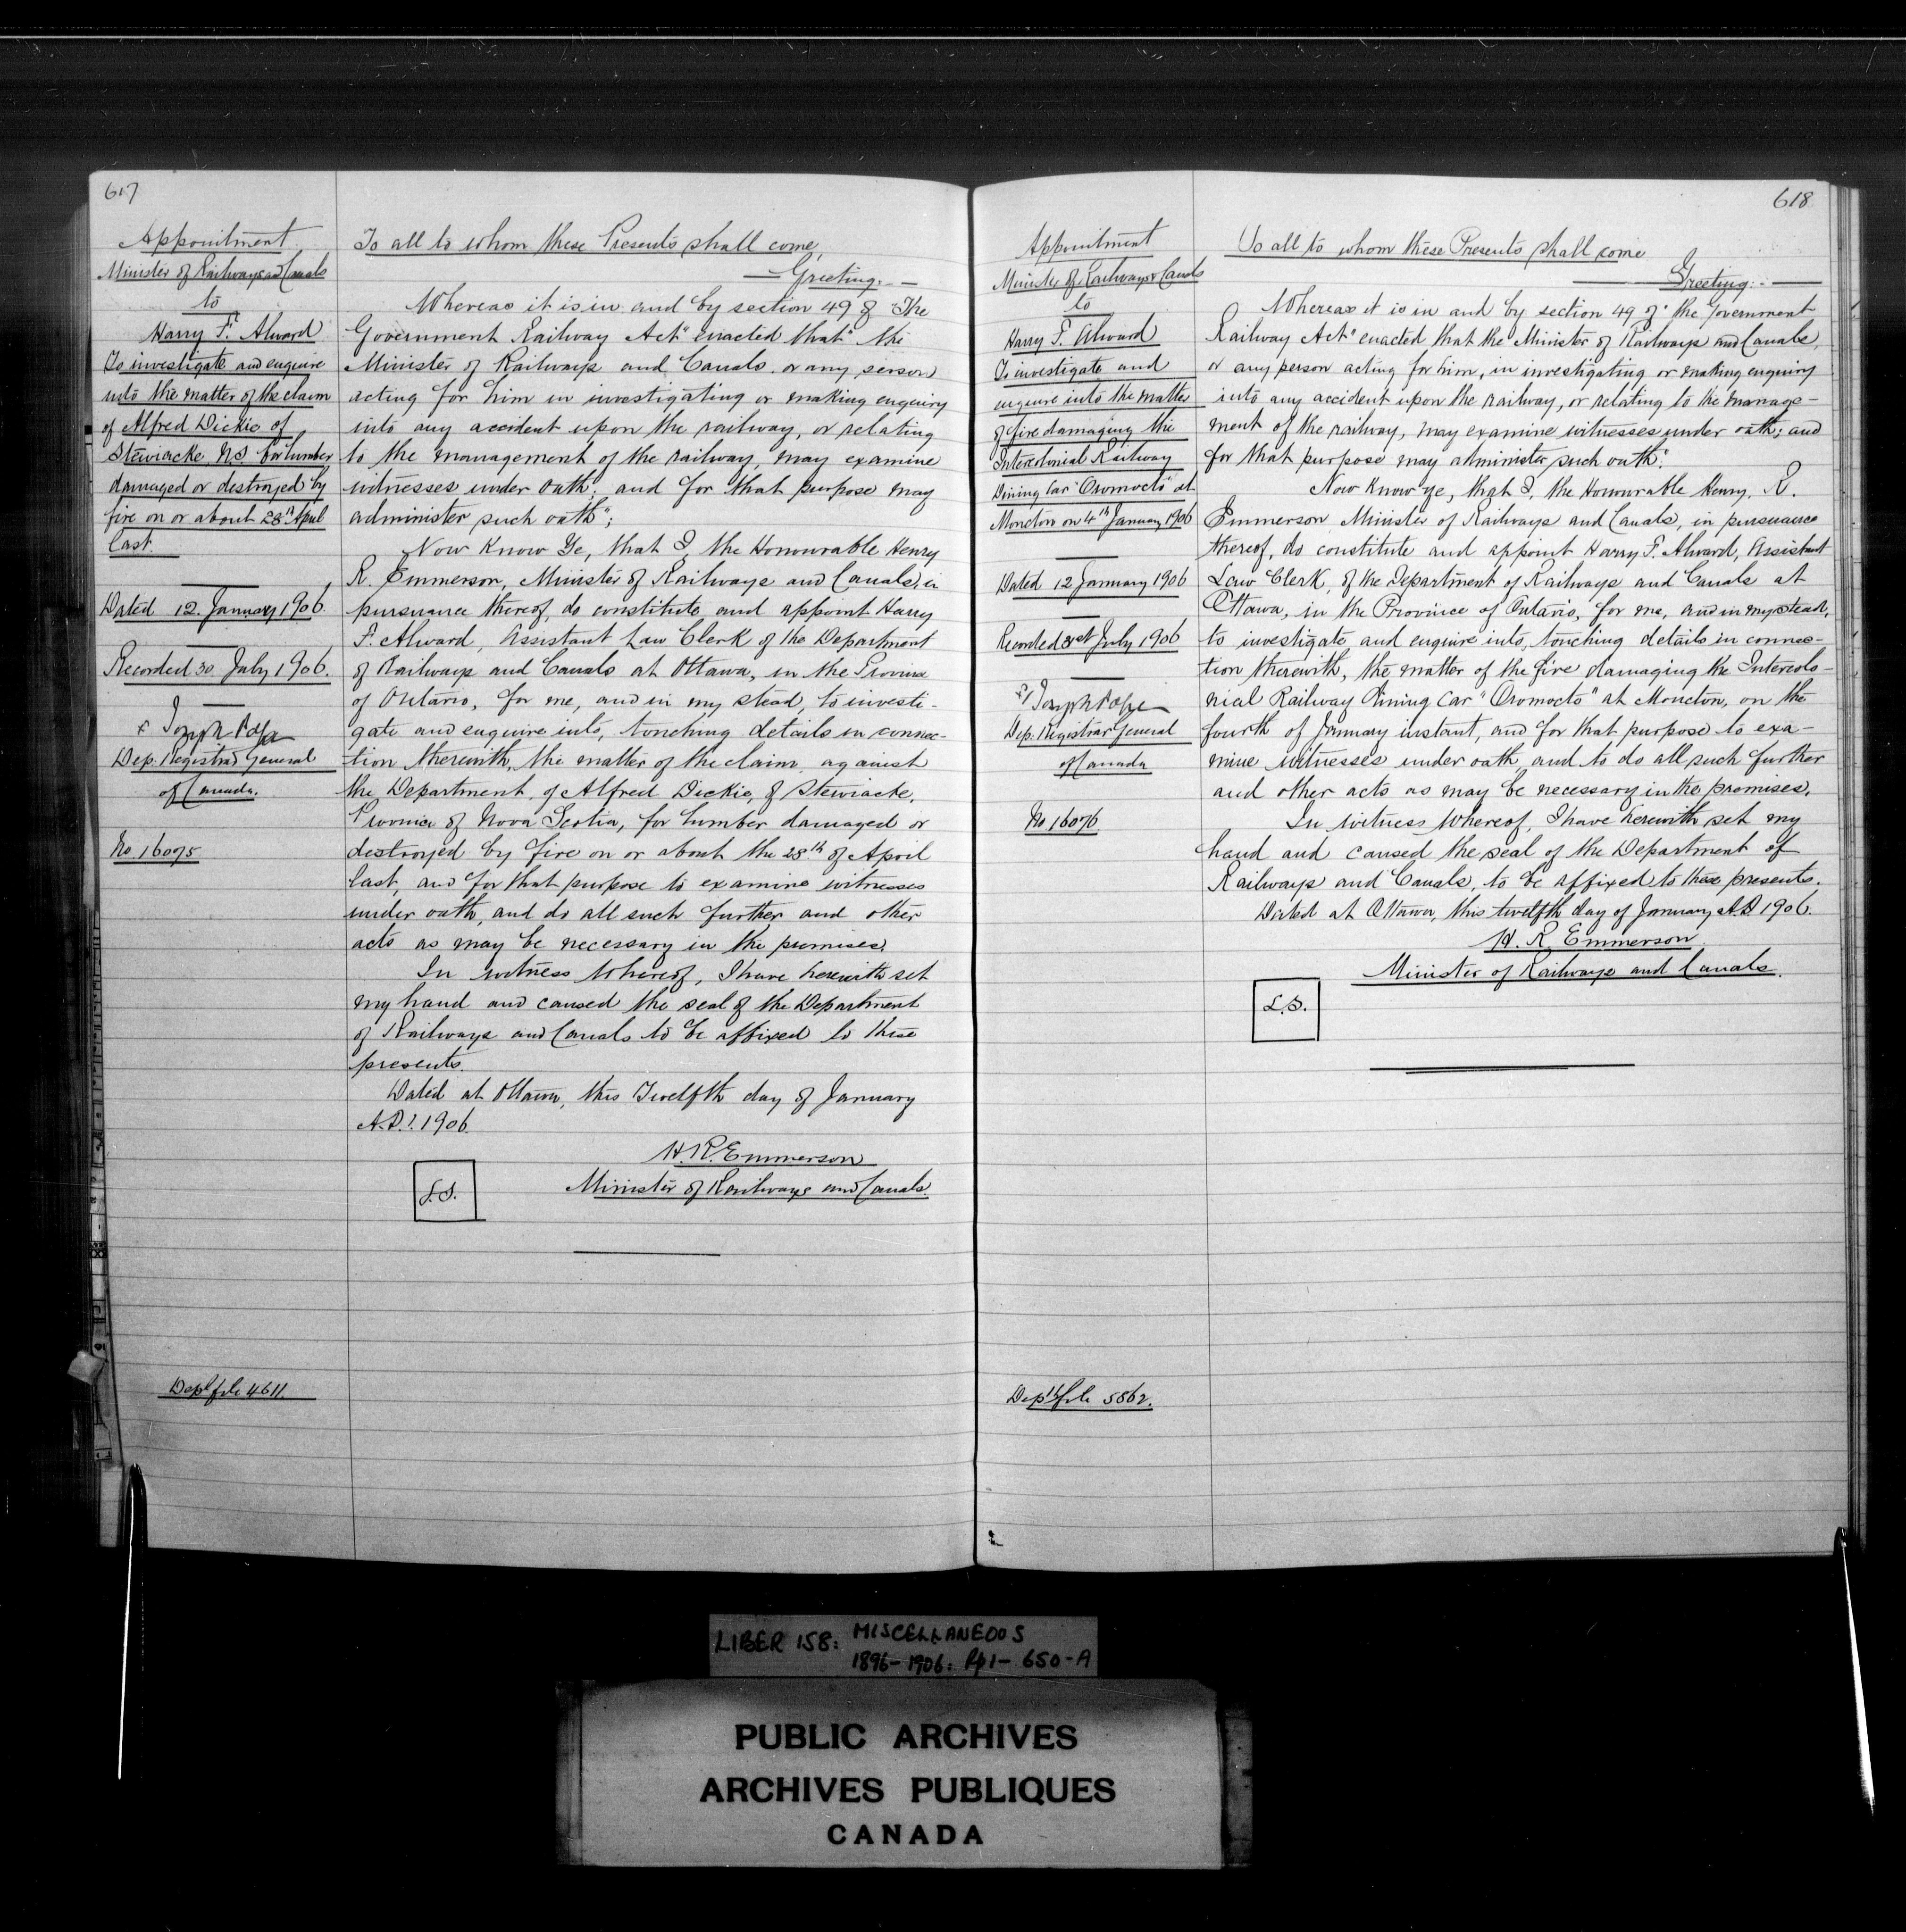 617
Appointment
Minister of Railways and Canals
to
Harry F. Alward
To investigate and enquire
into the matter of the claim
of Alfred Dickie of
Stewiacke N.S. for lumber
damaged or destroyed by
fire on or about 28th April
last.
Dated 12 January 1906.
Recorded 30 July 1906.
Joseph Pope
Dep. Registrar General
of Canada.
No. 16075
Dept file 4611.
To all to whom these Presents shall come,
Greeting:—
Whereas it is in and by section 49 of "The
Government Railway Act" enacted that "the
Minister of Railways and Canals or any person
acting for him in investigating or making enquiry
into any accident upon the railway, or relating
to the management of the railway, may examine
witnesses under oath; and for that purpose may
administer such oath";
Now Know Ye, that I, the Honourable Henry
R. Emmerson, Minister of Railways and Canals, in
pursuance thereof, do constitute and appoint Harry
F. Alward, Assistant Law Clerk of the Department
of Railways and Canals at Ottawa, in the Province
of Ontario, for me, and in my stead, to investi-
gate and enquire into, touching details in connec-
tion therewith, the matter of the claim against
the Department, of Alfred Dickie, of Stewiacke,
Province of Nova Scotia, for lumber damaged or
destroyed by fire on or about the 28th of April
last, and for that purpose to examine witnesses
under oath, and do all such further and other
acts as may be necessary in the premises.
In witness Whereof, I have herewith set
my hand and caused the seal of the Department
of Railways and Canals to be affixed to these
presents.
Dated at Ottawa, this Twelfth day of January
A.D. 1906.
H. R. Emmerson
Minister of Railways and Canals.
L.S.
618
Appointment
Minister of Railways & Canals
to
Harry F. Alward
To investigate and
enquire into the matter
of fire damaging the
Intercolonial Railway
Dining Car "Oromocto" at
Moncton on 4th January 1906
Dated 12 January 1906
Recorded 31st July 1906
Joseph Pope
Dep. Registrar General
of Canada
No. 16076
Dept file 5862.
To all to whom these Presents shall come
Greeting:—
Whereas it is in and by section 49 of "the Government
Railway Act" enacted that the Minister of Railways and Canals,
or any person acting for him, in investigating or making enquiry
into any accident upon the railway, or relating to the manage-
ment of the railway, may examine witnesses under oath; and
for that purpose may administer such oath".
Now Know ye, that I, the Honourable Henry. R.
Emmerson Minister of Railways and Canals, in pursuance
thereof, do constitute and appoint Harry F. Alward, Assistant
Law Clerk, of the Department of Railways and Canals at
Ottawa, in the Province of Ontario, for me, and in my stead,
to investigate and enquire into, touching details in connec-
tion therewith, the matter of the fire damaging the Intercolo-
nial Railway Dining Car "Oromocto" at Moncton, on the
fourth of January instant, and for that purpose to exa-
mine witnesses under oath, and to do all such further
and other acts as may be necessary in the premises.
In witness Whereof, I have herewith set my
hand and caused the seal of the Department of
Railways and Canals, to be affixed to these presents.
Dated at Ottawa, this twelfth day of January A.D 1906.
H. R. Emmerson
Minister of Railways and Canals.
L.S.
LIBER 158: MISCELLANEOUS
1896-1906: Pp1- 650-A
PUBLIC ARCHIVES
ARCHIVES PUBLIQUES
CANADA